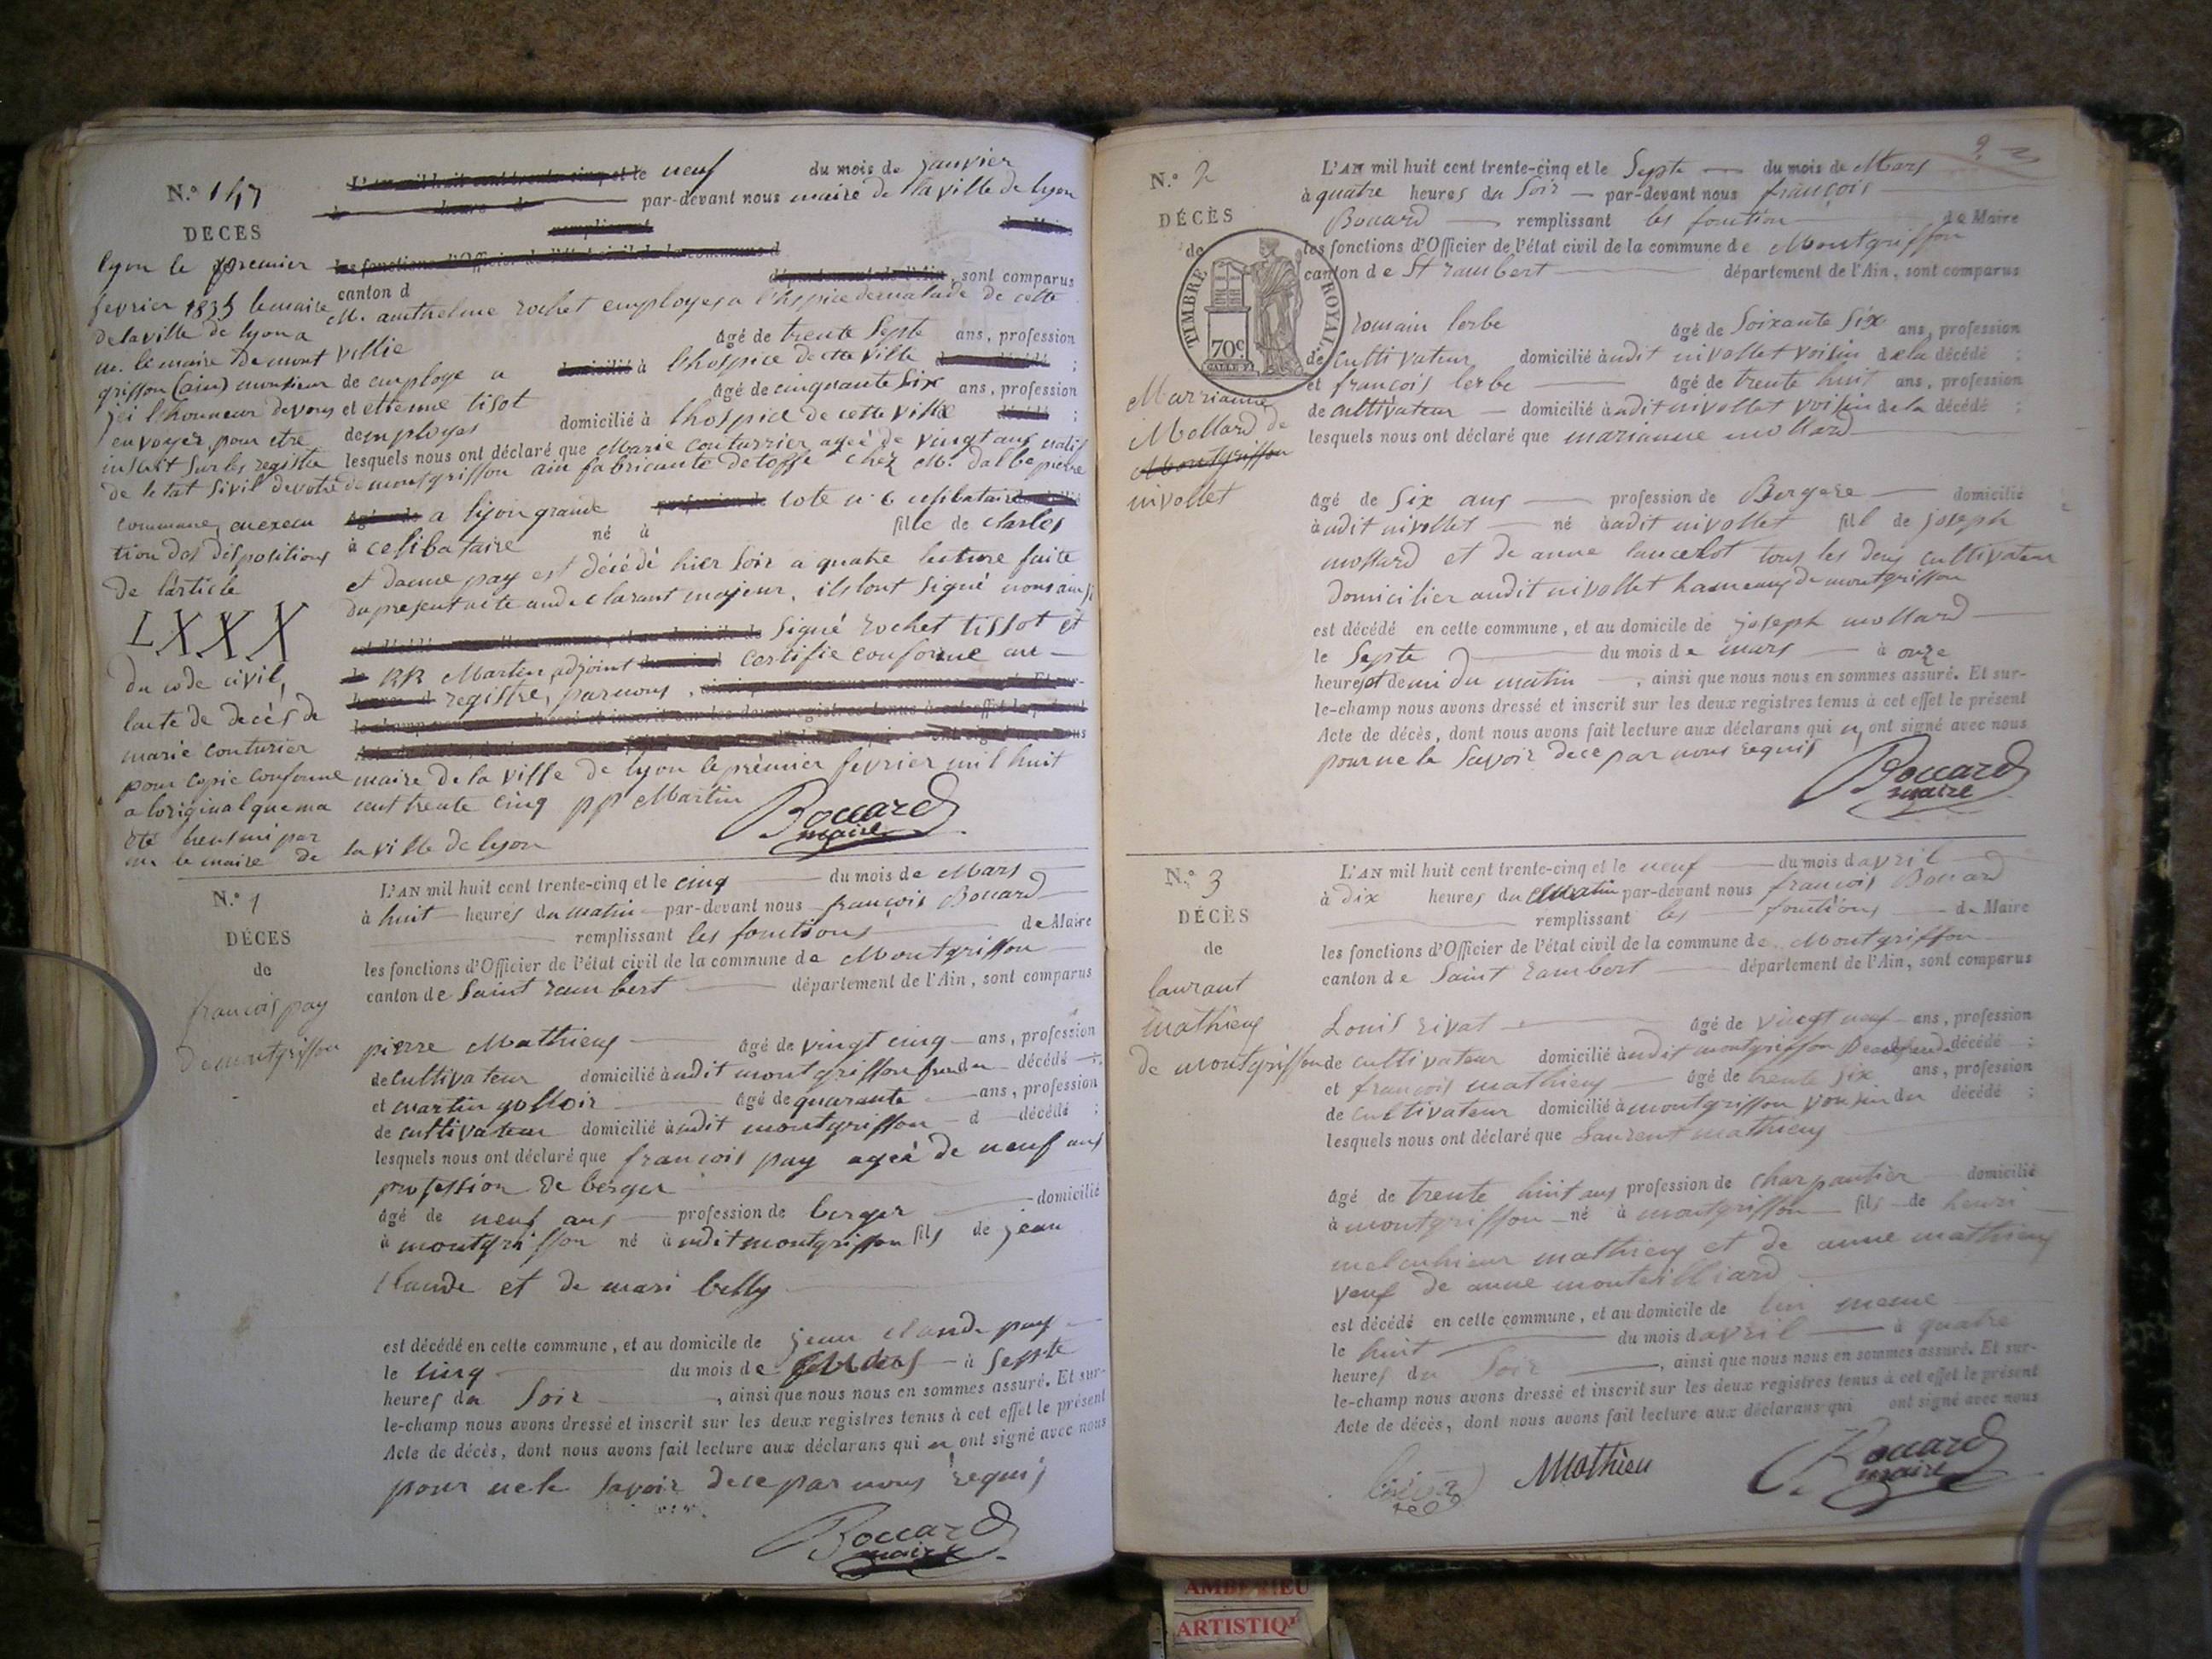 N.° 147
DECES
lyon le premier
fevrier 1835 le maire
de la ville de lyon a
m. le maire de mont
griffon (ain) monsieur
jei l'honneur de vous
envoyer pour etre
inscrit sur les registre
de letat Sivil de votre
commune, en execu
tion des dispositions
de l'article
LXXX
du code civil,
lacte de decès de
marie couturier
pour copie conforme
a loriginal que ma
été par
mr le maire de
L'AN mil huit cent trente-cinq et le neuf du mois de janvier
par-devant nous maire de la ville de lyon
remplissant de Maire
les fonctions d'Officier de l'état civil de la commune d
canton d département de l'Ain, sont comparus
M. anthelme rochet employes a l'hspice de malade de cette
villie agé de trente Septe ans, profession
de employe a domicilié à l'hospice de cette ville décédé ;
et etienne tisot agé de cinquante Six ans, profession
demployes domicilié à lhospice de cette ville décédé ;
lesquels nous ont déclaré que Marie couturrier ageé de vingt ans natif
de montgriffon ain fabricante detoffe chez M. dalbepierre
agé de a lyon grande profession de cote n° 6 domicilié
à celibataire né à fille de charles
et danne pay est décédé hier soir a quatre lecture faite
du present acte au declarant majeur, ils lont signé nous ainsi
est décédé en cette commune, et au domicile de Signé rochet tissot et
le RR Martin adjoint du mois d certifie conforme au
heures d registre, par nous, ainsi que nous nous en sommes assuré. Et sur-
le-champ nous avons dressé et inscrit sur les deux registres tenus à cet effet le présent
ont signé avec nous
maire de la ville de lyon le prémier fevrier mil huit
cent trente cinq pp Martin
la ville de lyon
Bouard
maire
N.° 1
DÉCES
de
francois pay
de montgriffon
L'AN mil huit cent trente-cinq et le cinq du mois de Mars
à huit heures du matin par-devant nous françois Bouard
remplissant les fonctions de Maire
les fonctions d'Officier de l'état civil de la commune de Montgriffon
canton de Saint rambert département de l'Ain, sont comparus
pierre Mathieux agé de vingt cinq ans, profession
de cultivateur domicilié àudit montgriffon décédé ;
et martin golloir agé de quarante ans, profession
de cultivateur domicilié àudit montgriffon d décédé ;
lesquels nous ont déclaré que francois pay ageé de neuf ans
profession de berger
agé de neuf ans profession de berger domicilié
à montgriffon né àudit montgriffon fils de jean
Claude et de mari belly
est décédé en cette commune, et au domicile de jean claude pay
le cinq du mois de à Septe
heures du Soir , ainsi que nous nous en sommes assuré. Et sur-
le-champ nous avons dressé et inscrit sur les deux registres tenus à cet effet le présent
Acte de décès, dont nous avons fait lecture aux déclarans qui n ont signé avec nous
pour ne le savoir dece par nous requis
Bouard
maire
2
N.° 2
DÉCÈS
de
TIMBRE ROYAL
70c
Marrianne
Mollard de
Montgriffon
nivollet
L'AN mil huit cent trente-cinq et le Septe du mois de Mars
à quatre heures du Soir par-devant nous françois
Bouard remplissant les fonction de Maire
les fonctions d'Officier de l'état civil de la commune de Montgriffon
canton de St rambert département de l'Ain, sont comparus
romain lerbe agé de Soixante Six ans, profession
de Cultivateur domicilié àudit nivollet voisin dela décédé ;
et françois lerbe agé de trente huit ans, profession
de cultivateur domicilié àudit nivollet voisin dela décédé ;
lesquels nous ont déclaré que marianne mollard
agé de Six ans profession de Bergere domicilié
àudit nivollet né àudit nivollet fill de joseph
mollard et de anne lancelot tous les deux cultivateur
domicilier audit nivollet hameaux de montgriffon
est décédé en cette commune, et au domicile de joseph mollard
le Septe du mois de mars à onze
heures et demi du matin , ainsi que nous nous en sommes assuré. Et sur-
le-champ nous avons dressé et inscrit sur les deux registres tenus à cet effet le présent
Acte de décès, dont nous avons fait lecture aux déclarans qui n ont signé avec nous
pour ne le Savoir dece par nous requis
Bouard
maire
N.° 3
DÉCÈS
de
laurant
mathieux
de montgriffon
L'AN mil huit cent trente-cinq et le neuf du mois d avril
à dix heures du Matin par-devant nous francois Bouard
remplissant les fonctions de Maire
les fonctions d'Officier de l'état civil de la commune de Montgriffon
canton de Saint rambert département de l'Ain, sont comparus
Louis rivat agé de vingt neuf ans, profession
de cultivateur domicilié àudit montgriffon décédé ;
et françois mathieux agé de trente Six ans, profession
de Cultivateur domicilié à montgriffon voisin du décédé ;
lesquels nous ont déclaré que Laurent mathieux
agé de trente huit ans profession de charpantier domicilié
à montgriffon né à montgriffon fils de henri
mathieux et de anne mathieux
veuf de anne monteilliard
est décédé en cette commune, et au domicile de lui meme
le huit du mois d avril à quatre
heures du Soir , ainsi que nous nous en sommes assuré. Et sur-
le-champ nous avons dressé et inscrit sur les deux registres tenus à cet effet le présent
Acte de décès, dont nous avons fait lecture aux déclarans qui ont signé avec nous
Mathieu
Bouard
maire
AMBERIEU
ARTISTIQ